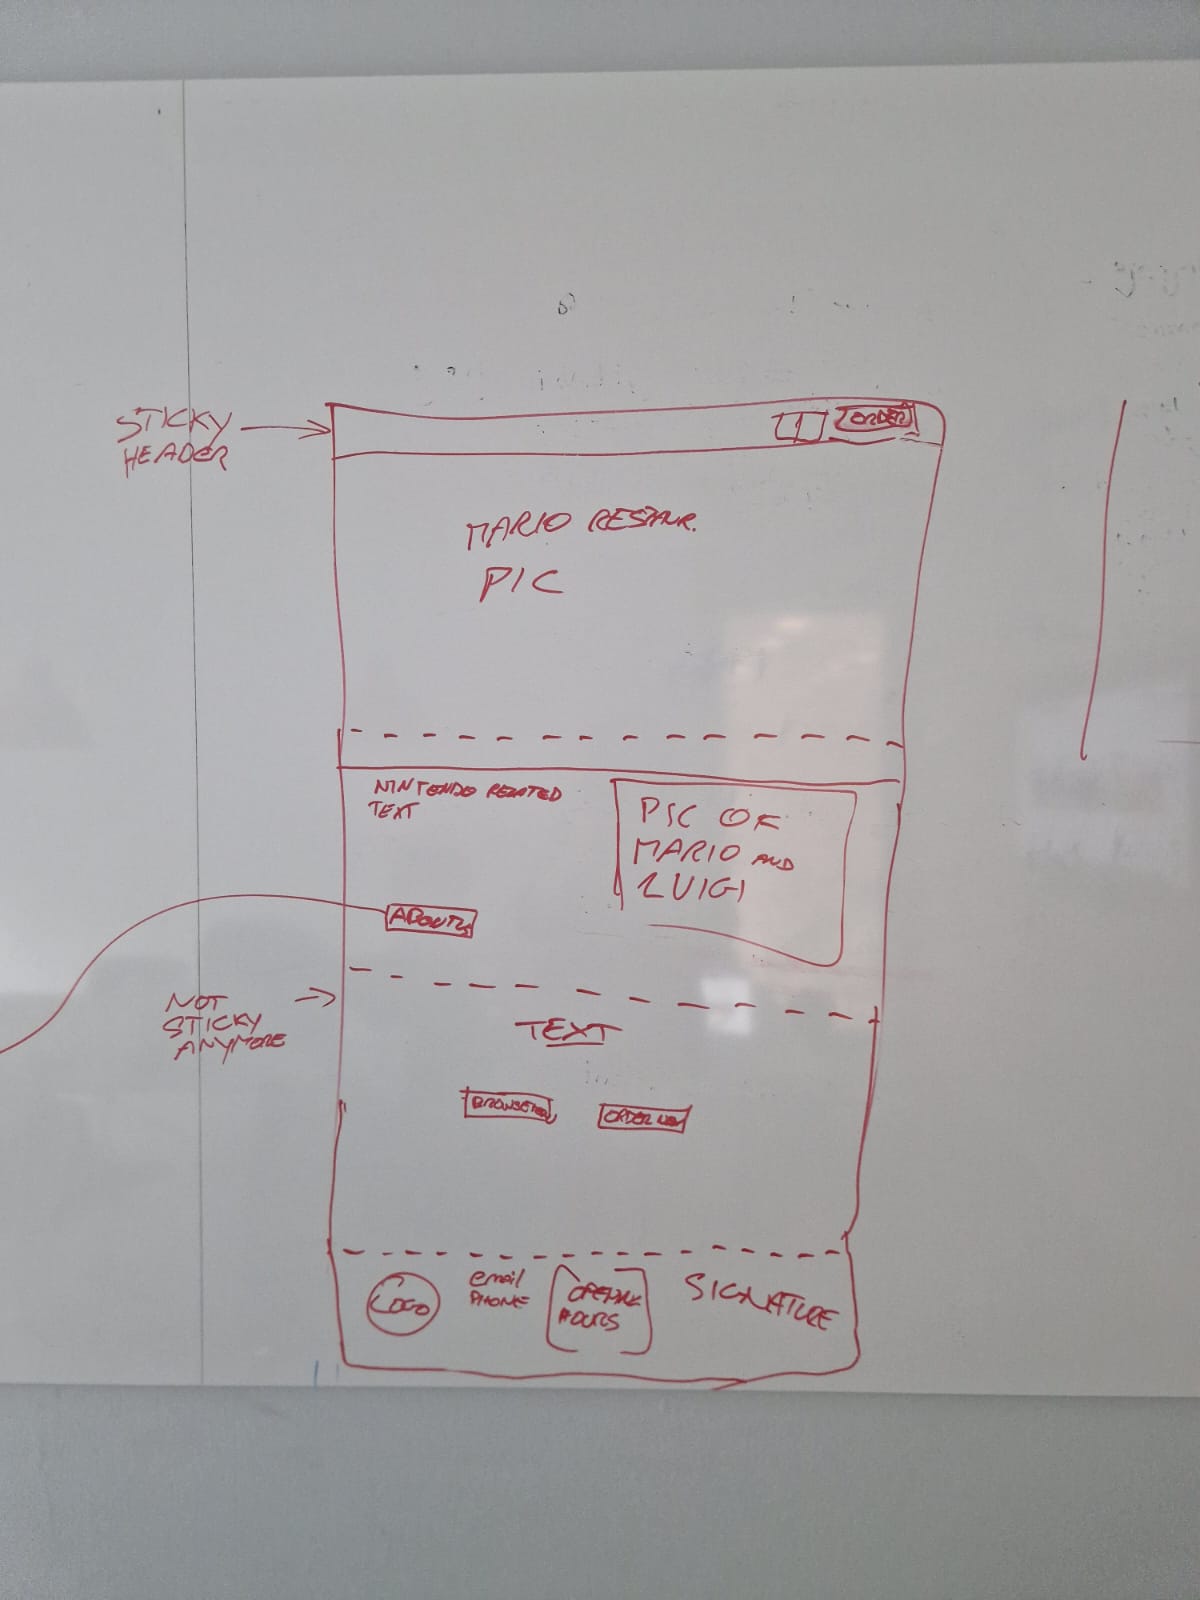 STICKY
HEADER
ORDER
MARIO RESTAUR.
PIC
NINTENDO RELATED
TEXT
PIC OF
MARIO AND
LUIGI
ABOUT US
NOT
STICKY
ANYMORE
TEXT
ORDER NOW
LOGO
email
PHONE
OPENING
HOURS
SIGNATURE